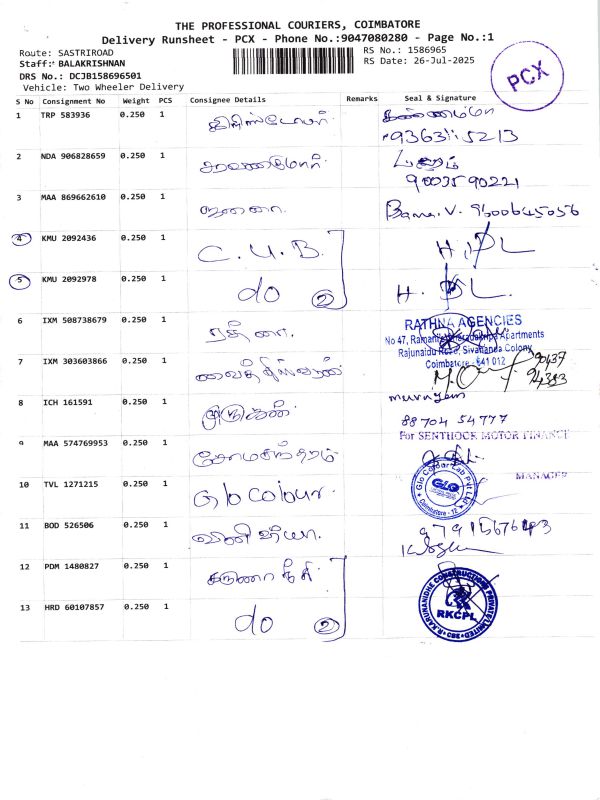 THE PROFESSIONAL COURIERS, COIMBATORE
Delivery Runsheet - PCX - Phone No.:9047080280 - Page No.:1
Route: SASTRIROAD
RS No.: 1586965
Staff: BALAKRISHNAN
RS Date: 26-Jul-2025
DRS No.: DCJB158696501
Vehicle: Two Wheeler Delivery
PCX
S No Consignment No Weight PCS Consignee Details Remarks Seal & Signature
1 TRP 583936 0.250 1
2 NDA 906828659 0.250 1
9003590221
3 MAA 869662610 0.250 1 Bama.V. 9600645056
4 KMU 2092436 0.250 1 C.U.B. H.PL
5 KMU 2092978 0.250 1 do 2 H.PL.
6 IXM 508738679 0.250 1 ரத்னா.
RATHNA AGENCIES
No 47, Apartments
Rajunaidu Road, Sivananda Colony
Coimbatore - 641 012
7 IXM 303603866 0.250 1
8 ICH 161591 0.250 1 முருகன் murugan
88704 54777
For SENTHOCK MOTOR FINANCE
9 MAA 574769953 0.250 1 சோமசுந்தரம்
MANAGER
10 TVL 1271215 0.250 1 Glo Colour.
Glo Colour Lab Pvt Ltd
GLO
Coimbatore - 12
11 BOD 526506 0.250 1
9791567643
12 PDM 1480827 0.250 1 கருணாநிதி
13 HRD 60107857 0.250 1 do 2
R.KARUNANIDHE CONSTRUCTIONS PRIVATE LIMITED
RKCPL
CBE